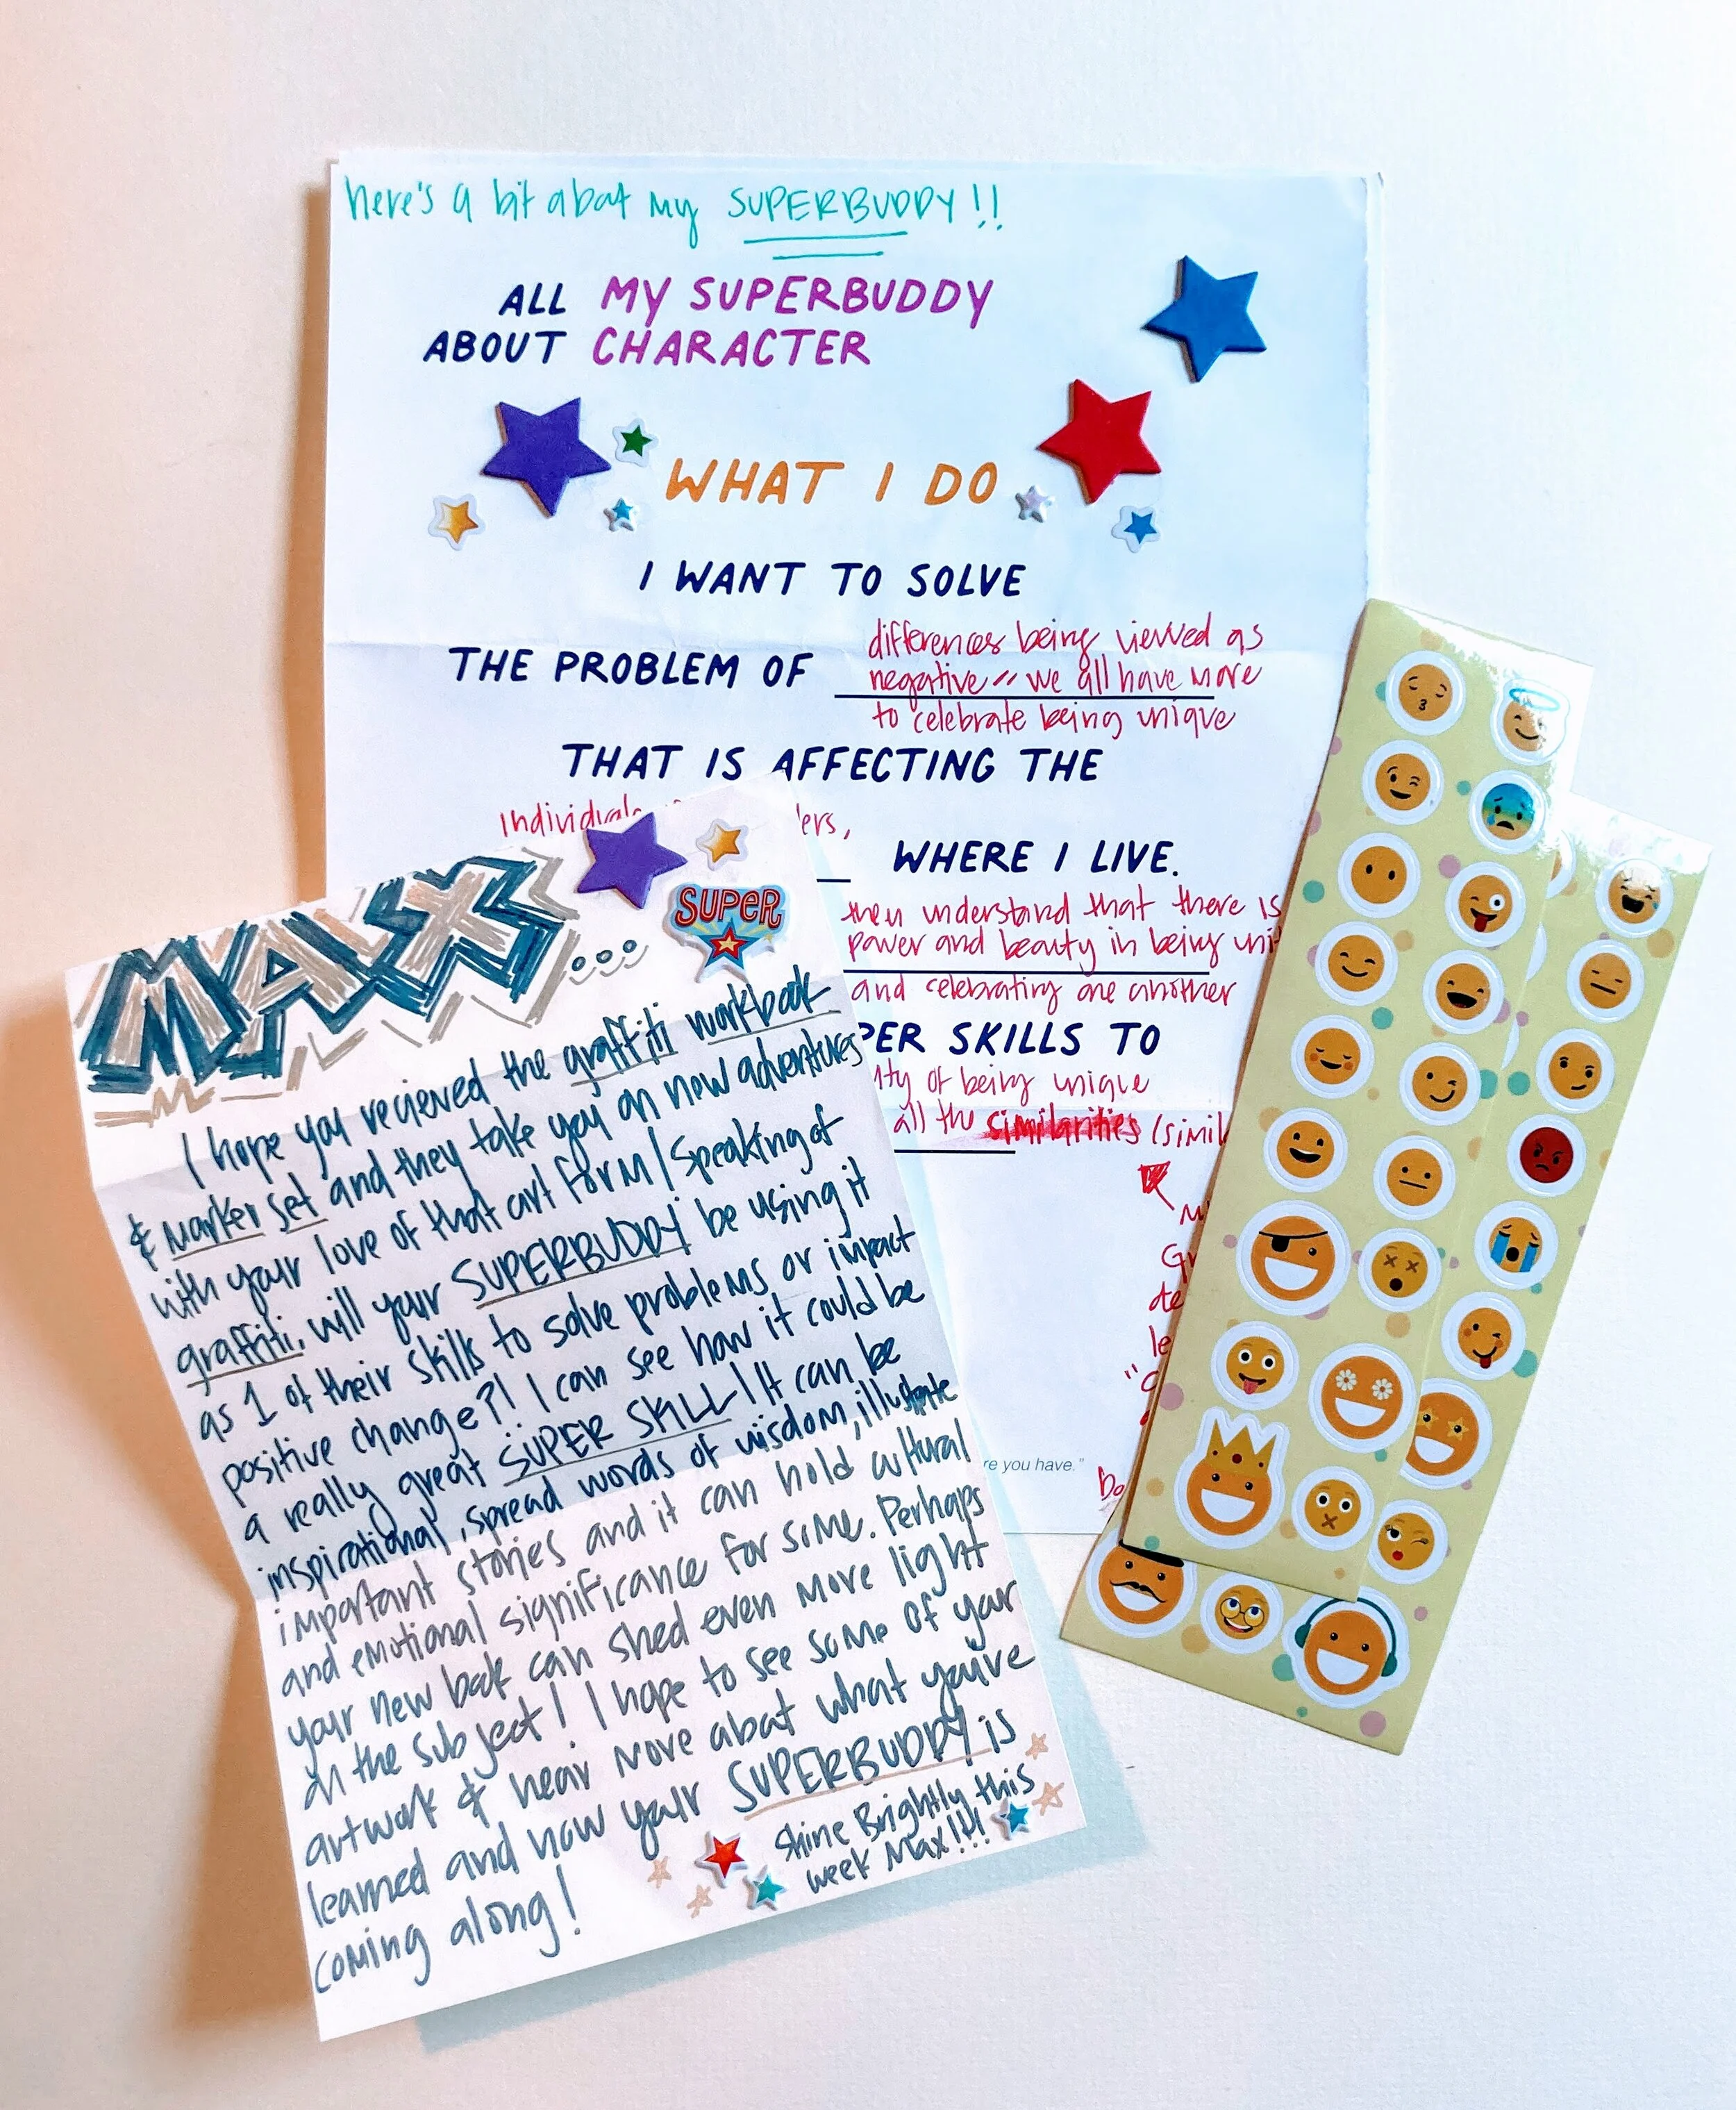 here's a bit about my SUPERBUDDY!!
ALL MY SUPERBUDDY
ABOUT CHARACTER
WHAT I DO
I WANT TO SOLVE
differences being viewed as
THE PROBLEM OF negative // we all have more
to celebrate being unique
THAT IS AFFECTING THE
Individuals
WHERE I LIVE.
then understand that there is
power and beauty in being
and celebrating one another
SKILLS TO
of being unique
all the similarities
re you have."
MAX...
SUPER
I hope you recieved the graffiti workbook
& marker set and they take you on new adventures
with your love of that art form! Speaking of
graffiti, will your SUPERBUDDY be using it
as 1 of their skills to solve problems or impact
positive change?! I can see how it could be
a really great SUPER SKILL! It can be
inspirational, spread words of wisdom, illustrate
important stories and it can hold cultural
and emotional significance for some. Perhaps
your new book can shed even more light
on the subject! I hope to see some of your
artwork & hear more about what you've
learned and how your SUPERBUDDY is
coming along!
Shine Brightly this
week Max!!!